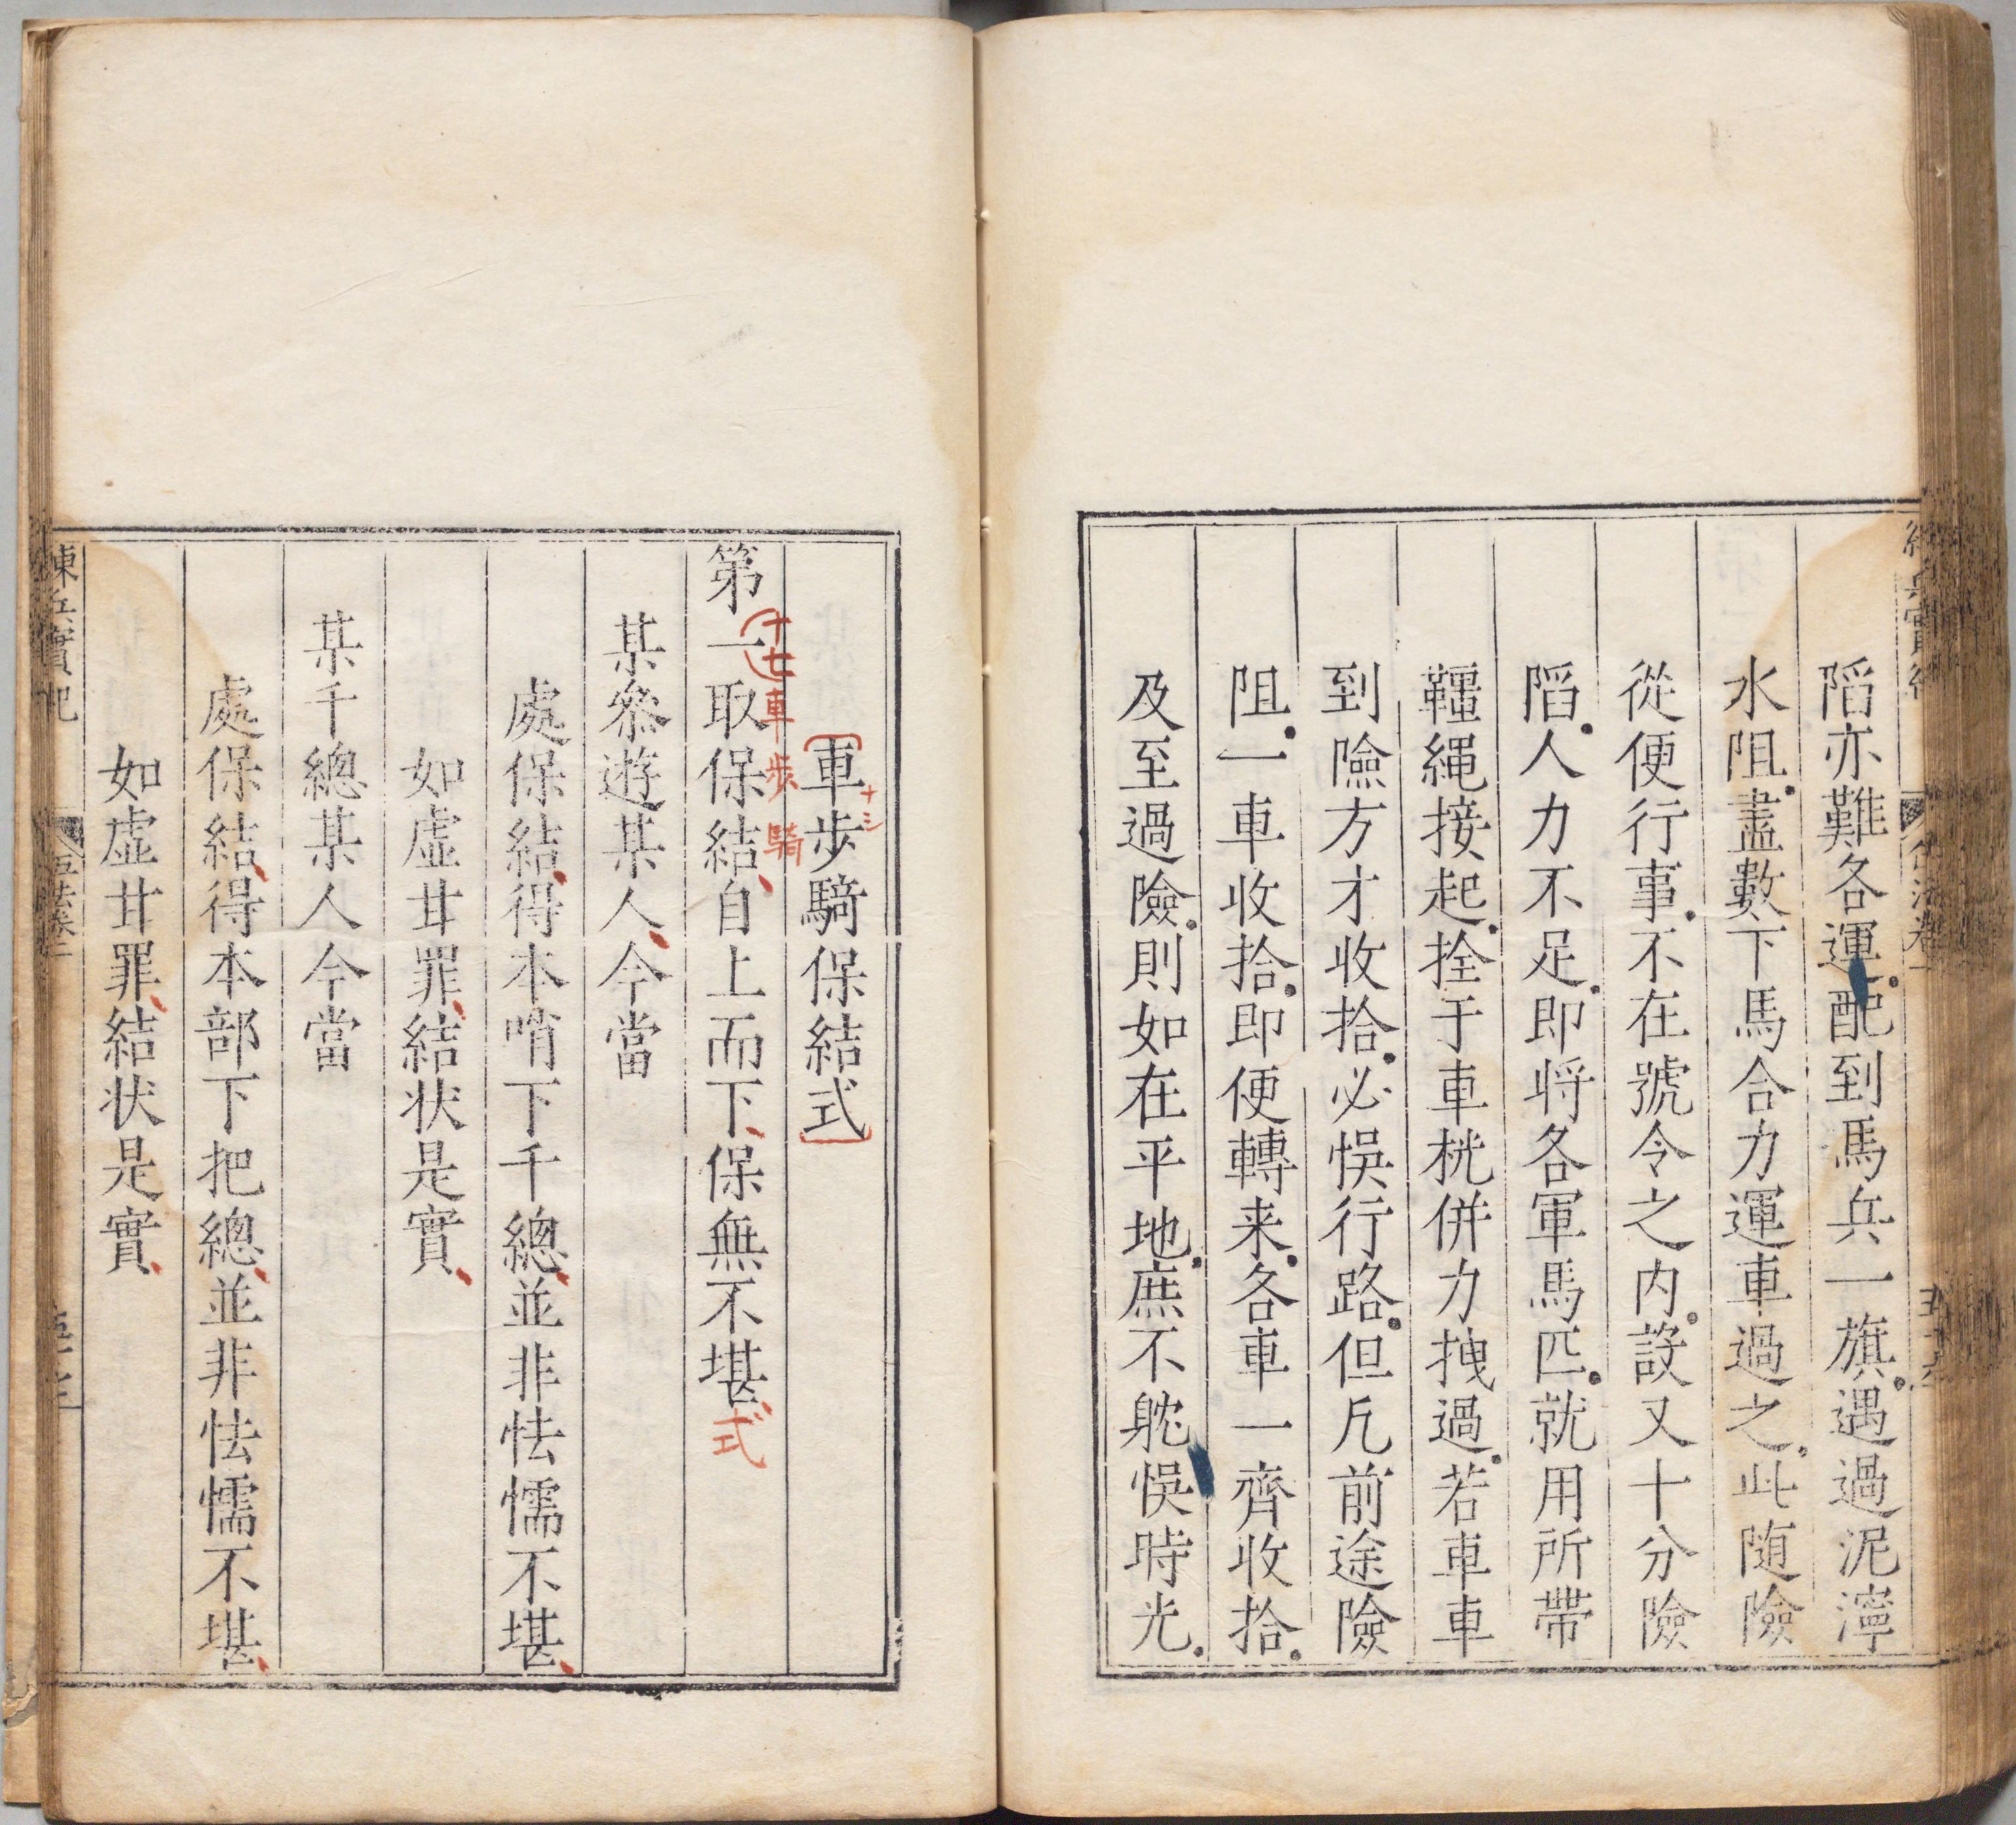 陷亦難各運配到馬兵一旗遇過泥濘
水阻盡數下馬合力運車過之此随險
從便行事不在號令之内設又十分險
陷人力不足即将各軍馬匹就用所帶
韁繩接起拴于車桄併力拽過若車車
到險方才收拾必悞行路但凡前途險
阻一車收拾即便轉来各車一齊收拾
及至過險則如在平地庶不躭悞時光
車步騎保結式
十三
第一取保結自上而下保無不堪式
十七車步騎
某叅遊某人今當
處保結得本哨下千總並非怯懦不堪
如虚甘罪結状是實
某千總某人今當
處保結得本部下把總並非怯懦不堪
如虚甘罪結状是實
練兵實紀